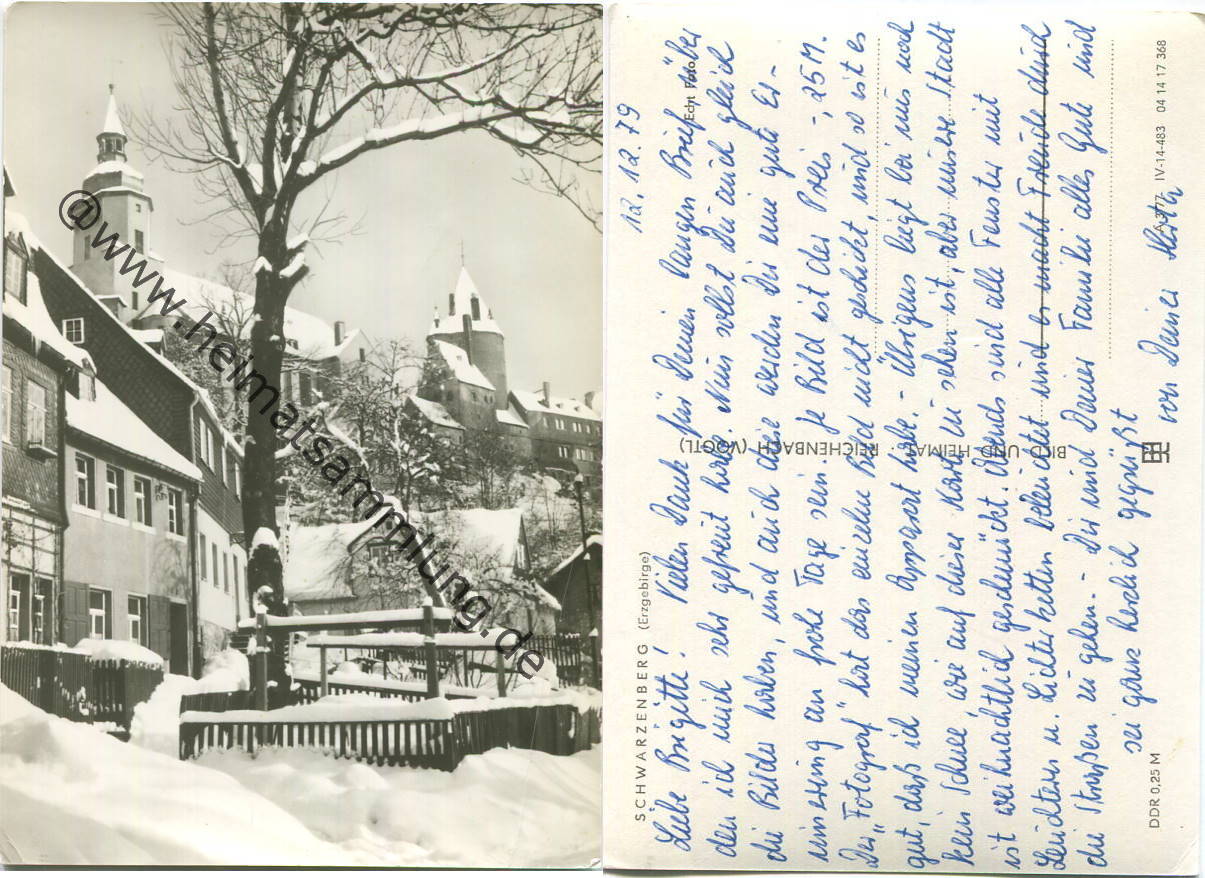 @www.heimatsammlung.de
12.12.79
SCHWARZENBERG (Erzgebirge)
Echt Foto
Liebe Brigitte! Vielen Dank für Deinen langen Brief über
den ich mich sehr gefreut habe. Nun sollst Du auch gleich
die Bilder haben, und auch diese werden Dir eine gute Er-
innerung an frohe Tage sein. Je Bild ist der Preis -,25 M.
Der "Fotograf" hat das einzelne Bild nicht geschickt, und so ist es
gut, daß ich meinen Apparat habe. - Übrigens liegt bei uns noch
kein Schnee wie auf dieser Karte zu sehen ist, aber unsere Stadt
ist weihnachtlich geschmückt. Abends sind alle Fenster mit
Leuchtern u. Lichterketten beleuchtet und es macht Freude durch
die Straßen zu gehen. - Dir und Deiner Familie alles Gute und
sei ganz herzlich gegrüßt
von Deiner Herta
BILD UND HEIMAT REICHENBACH (VOGTL)
DDR 0,25 M
A 3/77 IV-14-483 04 14 17 368